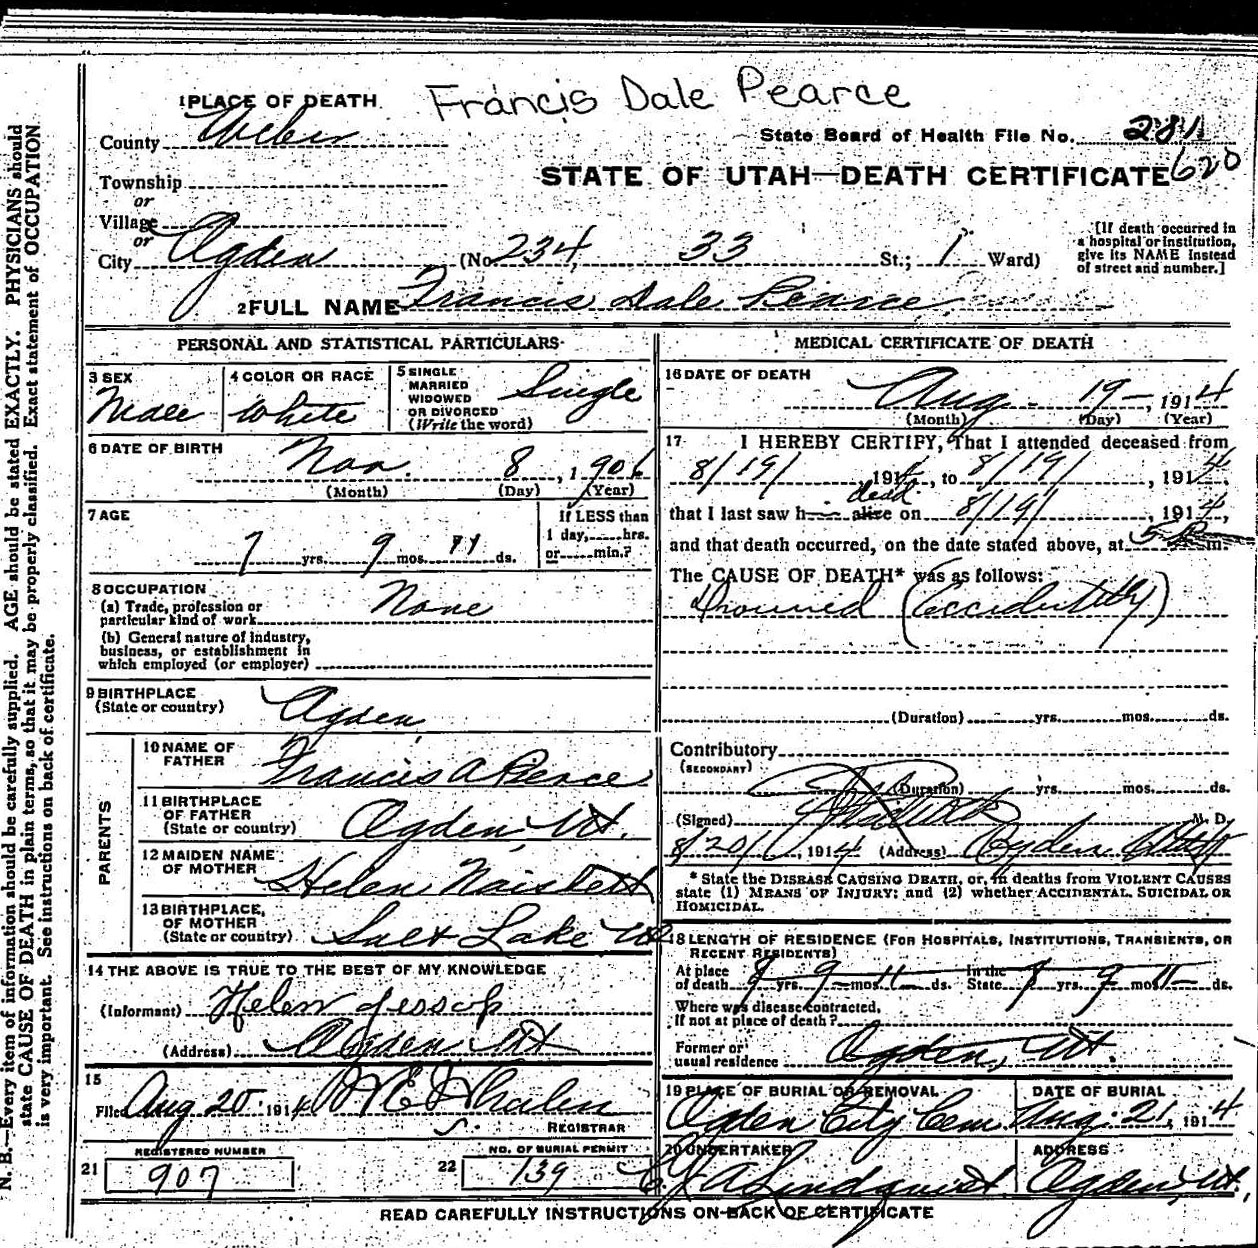 Francis Dale Pearce
1 PLACE OF DEATH
County Weber
State Board of Health File No. 281
620
Township
or
STATE OF UTAH—DEATH CERTIFICATE
Village
or
City Ogden (No. 234, 33 St.; 1 Ward)
[If death occurred in a hospital or institution, give its NAME instead of street and number.]
2 FULL NAME Francis Dale Pearce
PERSONAL AND STATISTICAL PARTICULARS
3 SEX Male
4 COLOR OR RACE White
5 SINGLE MARRIED WIDOWED OR DIVORCED (Write the word) Single
6 DATE OF BIRTH Nov. 8, 1906
(Month) (Day) (Year)
7 AGE 7 yrs. 9 mos. 11 ds.
If LESS than 1 day, hrs. or min.?
8 OCCUPATION
(a) Trade, profession or particular kind of work None
(b) General nature of industry, business, or establishment in which employed (or employer)
9 BIRTHPLACE (State or country) Ogden
PARENTS
10 NAME OF FATHER Francis A Pearce
11 BIRTHPLACE OF FATHER (State or country) Ogden Ut.
12 MAIDEN NAME OF MOTHER Helen
13 BIRTHPLACE OF MOTHER (State or country) Salt Lake Ut
14 THE ABOVE IS TRUE TO THE BEST OF MY KNOWLEDGE
(Informant) Helen Jessop
(Address) Ogden Ut
15 Filed Aug 20 1914 Whalen
REGISTRAR
21 REGISTERED NUMBER 907
22 NO. OF BURIAL PERMIT 139
MEDICAL CERTIFICATE OF DEATH
16 DATE OF DEATH
Aug. 19, 1914
(Month) (Day) (Year)
17 I HEREBY CERTIFY, That I attended deceased from
8/19/, 1914, to 8/19/, 1914,
that I last saw h alive dead on 8/19/, 1914,
and that death occurred, on the date stated above, at 5 P. m.
The CAUSE OF DEATH* was as follows:
Drowned (Accidentally)
(Duration) yrs. mos. ds.
Contributory
(SECONDARY)
(Duration) yrs. mos. ds.
(Signed) M. D.
8/20/, 1914 (Address) Ogden Utah
* State the DISEASE CAUSING DEATH, or, in deaths from VIOLENT CAUSES
state (1) MEANS OF INJURY; and (2) whether ACCIDENTAL, SUICIDAL OR
HOMICIDAL.
18 LENGTH OF RESIDENCE (FOR HOSPITALS, INSTITUTIONS, TRANSIENTS, OR
RECENT RESIDENTS)
At place of death yrs. 9 mos. 11 ds. In the State yrs. 9 mos. 11 ds.
Where was disease contracted,
if not at place of death?
Former or usual residence Ogden, Ut.
19 PLACE OF BURIAL OR REMOVAL Ogden City Cem
DATE OF BURIAL Aug. 21, 1914
20 UNDERTAKER Lindquist
ADDRESS Ogden, Ut.
READ CAREFULLY INSTRUCTIONS ON BACK OF CERTIFICATE
N. B.—Every item of information should be carefully supplied. AGE should be stated EXACTLY. PHYSICIANS should
state CAUSE OF DEATH in plain terms, so that it may be properly classified. Exact statement of OCCUPATION
is very important. See instructions on back of certificate.